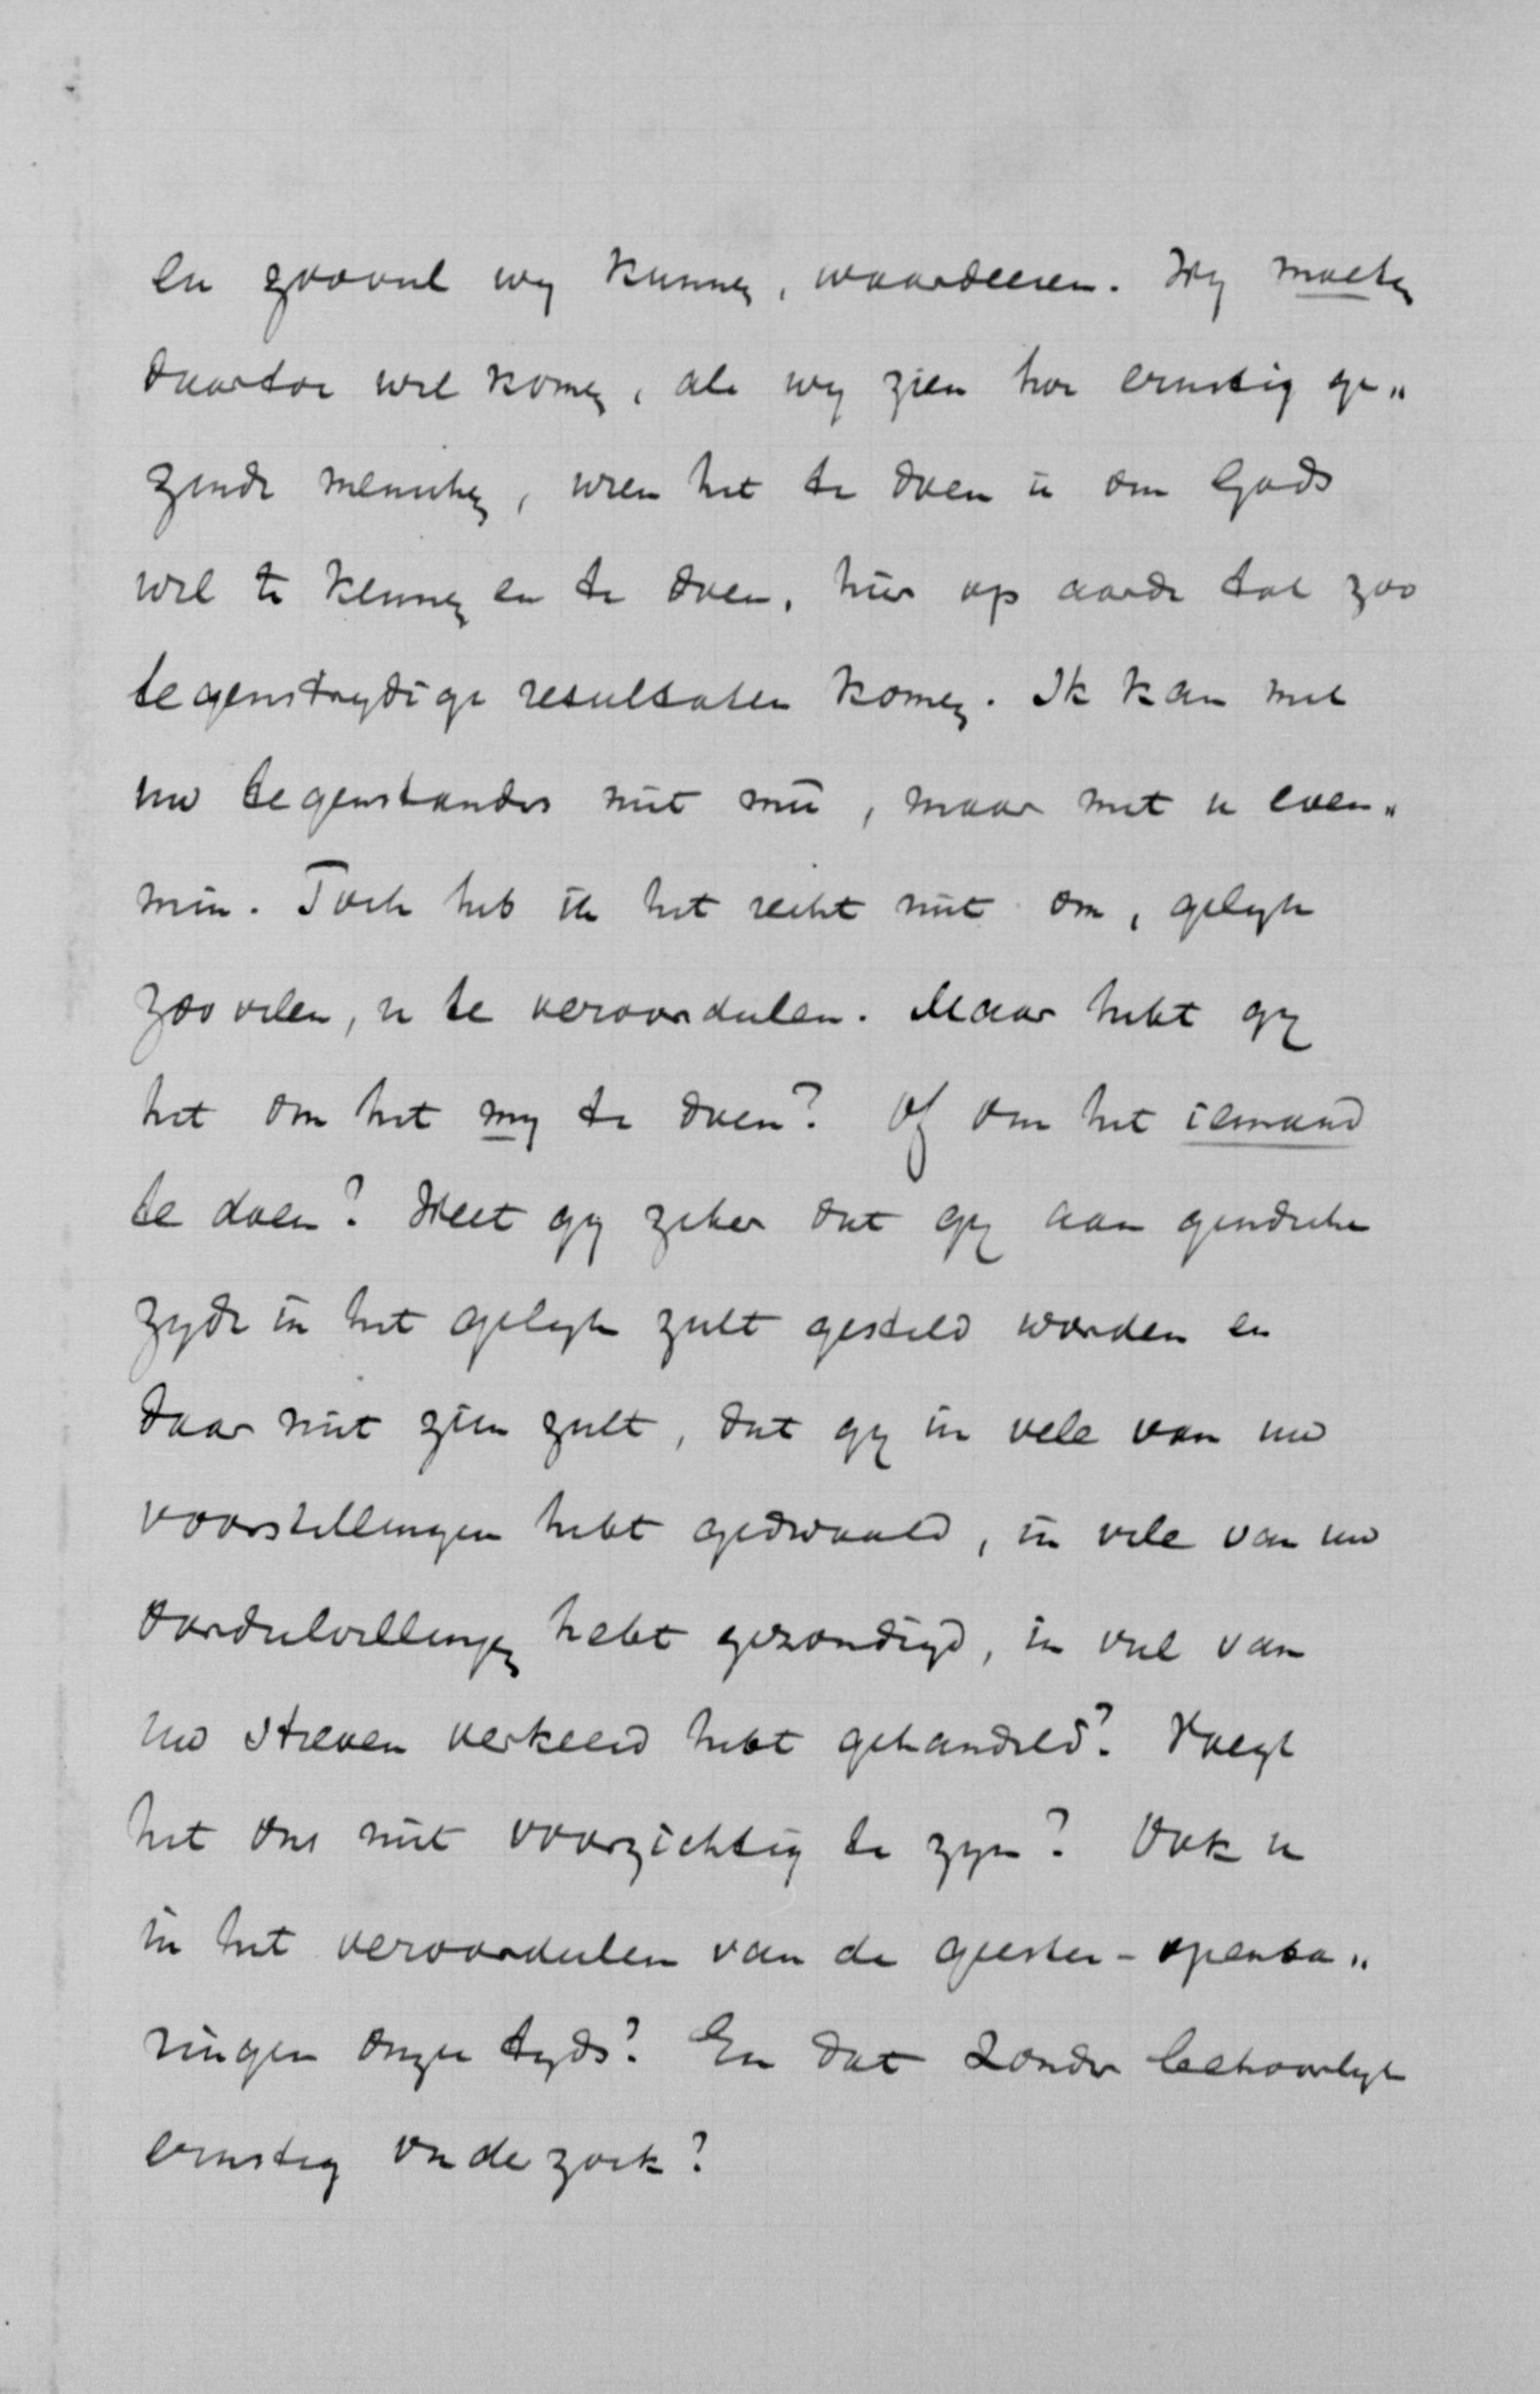 en zooveel wy kunnen, waardeeren. Wy moeten
daartoe wel komen, als wy zien hoe ernstig ge„
zinde menschen, wien het te doen is om Gods
wil te kennen en te doen, hier op aarde tot zoo
tegenstrydige resultaten komen. Ik kan met
uw tegenstanders niet mee, maar met u even„
min. Toch heb ik het recht niet om, gelyk
zoovelen, u te veroordeelen. Maar hebt gy
het om het my te doen? Of om het iemand
te doen? Weet gy zeker dat gy aan gindsche
zyde in het gelyk zult gesteld worden en
daar niet zien zult, dat gy in vele van uw
voorstellingen hebt gedwaald, in vele van uw
oordeelvellingen hebt gezondigd, in veel van
uw streven verkeerd hebt gehandeld? Voegt
het ons niet voorzichtig te zyn? Ook u
in het veroordeelen van de geesten-openba„
ringen onzes tyds? En dat zonder behoorlyk
ernstig onderzoek?